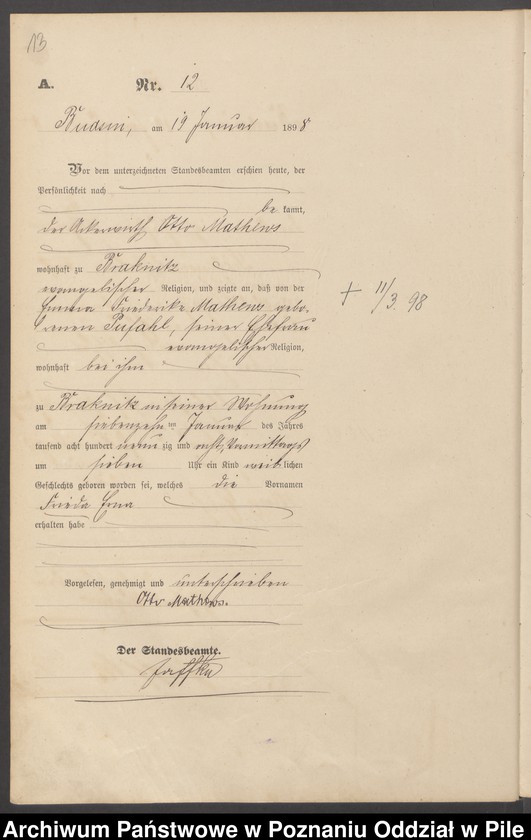 13
A.
Nr. 12
Budsin, am 19 Januar 1898
Vor dem unterzeichneten Standesbeamten erschien heute, der
Persönlichkeit nach
be kannt,
der Ackerwirth Otto Mathews
wohnhaft zu Braknitz
evangelischer Religion, und zeigte an, daß von der
Emma Friederike Mathews gebo-
renen Pufahl, seiner Ehefrau
evangelischer Religion,
wohnhaft bei ihm
zu Braknitz in seiner Wohnung
am siebenzehn ten Januar des Jahres
tausend acht hundert neun zig und acht, Vormittags
um sieben Uhr ein Kind weib lichen
Geschlechts geboren worden sei, welches die Vornamen
Frieda Erna
erhalten habe
Vorgelesen, genehmigt und unterschrieben
Otto Mathews.
Der Standesbeamte.
+ 11/3. 98
Archiwum Państwowe w Poznaniu Oddział w Pile